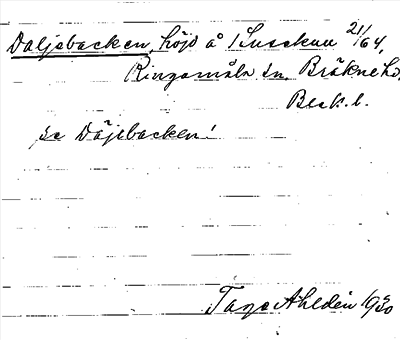 Daljebacken, höjd å 21/64,
Ringamåla sn, Bräkne hd.
Blek. l.
se Däjebacken!
Tage Ahldén 1930